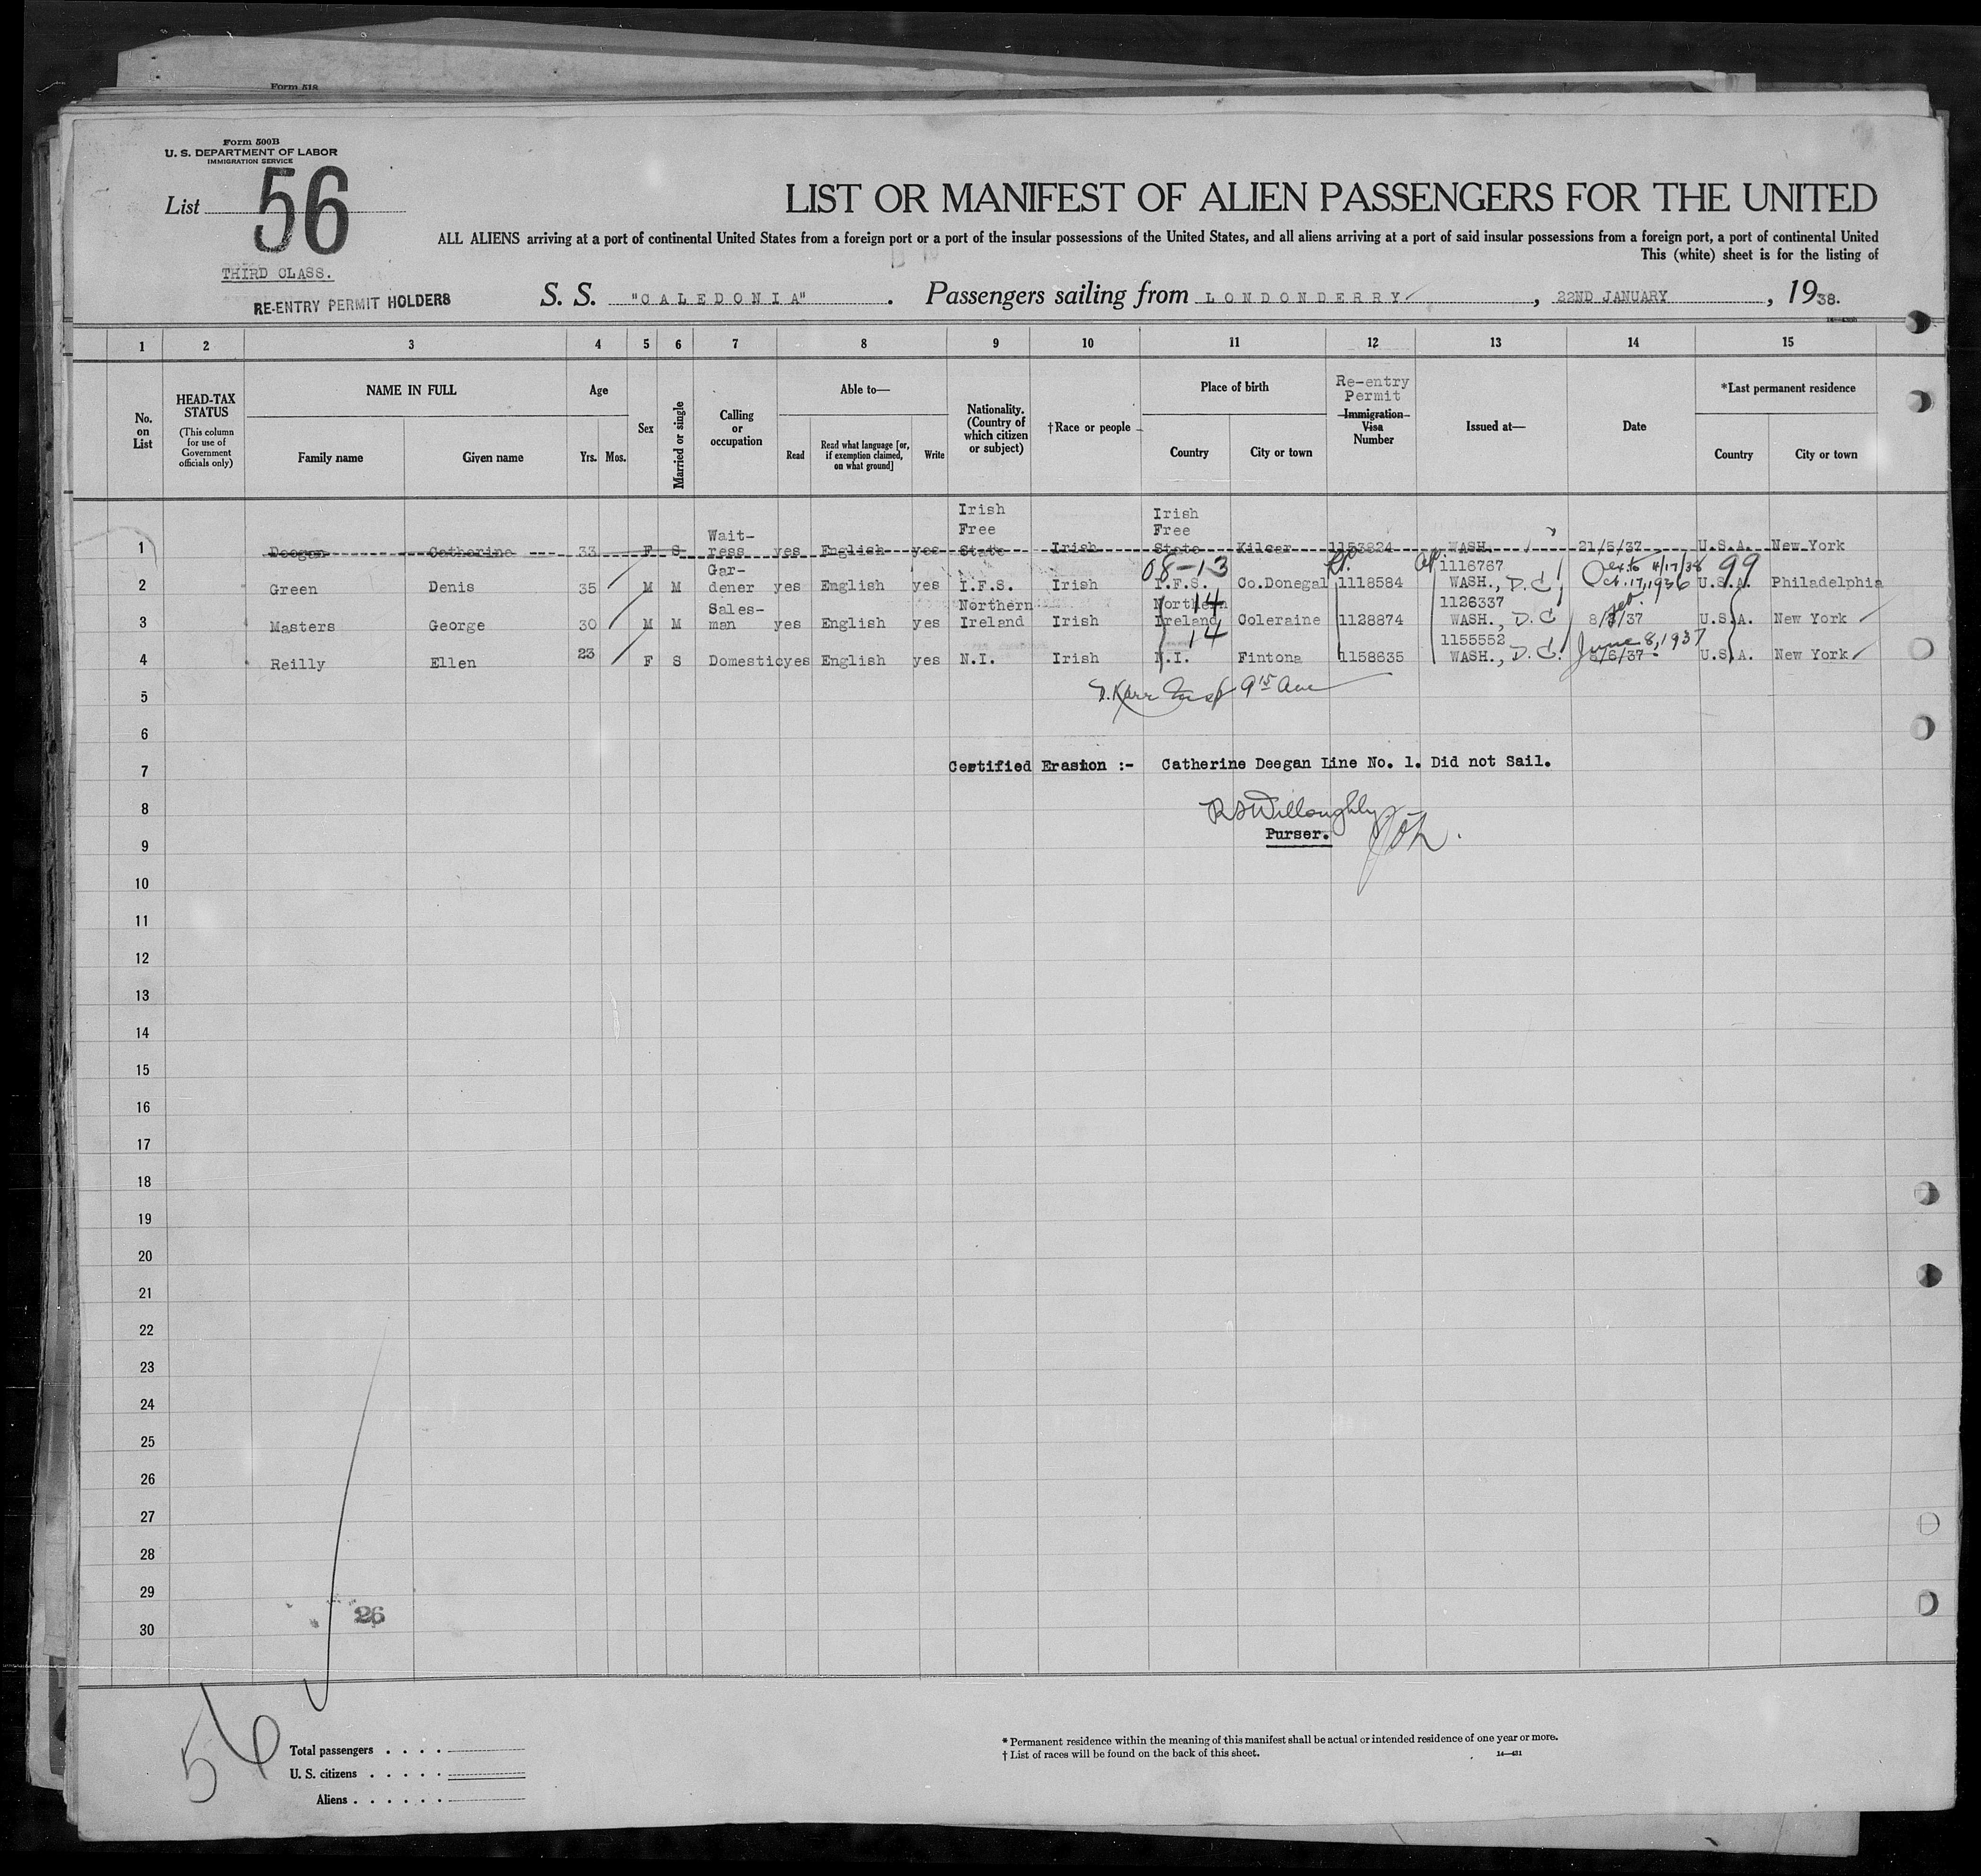 Form 518
Form 500B
U. S. DEPARTMENT OF LABOR
IMMIGRATION SERVICE
List 56
THIRD CLASS.
RE-ENTRY PERMIT HOLDERS
LIST OR MANIFEST OF ALIEN PASSENGERS FOR THE UNITED
ALL ALIENS arriving at a port of continental United States from a foreign port or a port of the insular possessions of the United States, and all aliens arriving at a port of said insular possessions from a foreign port, a port of continental United
This (white) sheet is for the listing of
S. S. "CALEDONIA". Passengers sailing from LONDONDERRY, 22ND JANUARY, 1938.
1 2 3 4 5 6 7 8 9 10 11 12 13 14 15
No. on List
HEAD-TAX STATUS (This column for use of Government officials only)
NAME IN FULL
Family name Given name
Age
Yrs. Mos.
Sex
Married or single
Calling or occupation
Able to—
Read Read what language [or, if exemption claimed, on what ground] Write
Nationality. (Country of which citizen or subject)
†Race or people
Place of birth
Country City or town
Re-entry Permit
Immigration Visa Number
Issued at—
Date
*Last permanent residence
Country City or town
1 Deegan Catherine 33 F S Wait-ress yes English yes Irish Free State Irish Irish Free State Kilcar 1153824 WASH. 21/5/37 U.S.A. New York
08-13 1116767 ext to 4/17/38 99
2 Green Denis 35 M M Gar-dener yes English yes I.F.S. Irish I.F.S. Co.Donegal 1118584 WASH., D.C. Oct. 17, 1936 U.S.A. Philadelphia
14 1126337 Feb.
3 Masters George 30 M M Sales-man yes English yes Northern Ireland Irish Northern Ireland Coleraine 1128874 WASH., D.C 8/2/37 U.S.A. New York
14 1155552 June 8, 1937
4 Reilly Ellen 23 F S Domestic yes English yes N.I. Irish N.I. Fintona 1158635 WASH., D.C. 8/6/37 U.S.A. New York
5
6
7 Certified Erasion :- Catherine Deegan Line No. 1. Did not Sail.
8 Willoughby
9 Purser.
10
11
12
13
14
15
16
17
18
19
20
21
22
23
24
25
26
27
28
29
26
30
56
Total passengers . . . .
U. S. citizens . . . . .
Aliens . . . . . .
* Permanent residence within the meaning of this manifest shall be actual or intended residence of one year or more.
† List of races will be found on the back of this sheet.
14—431